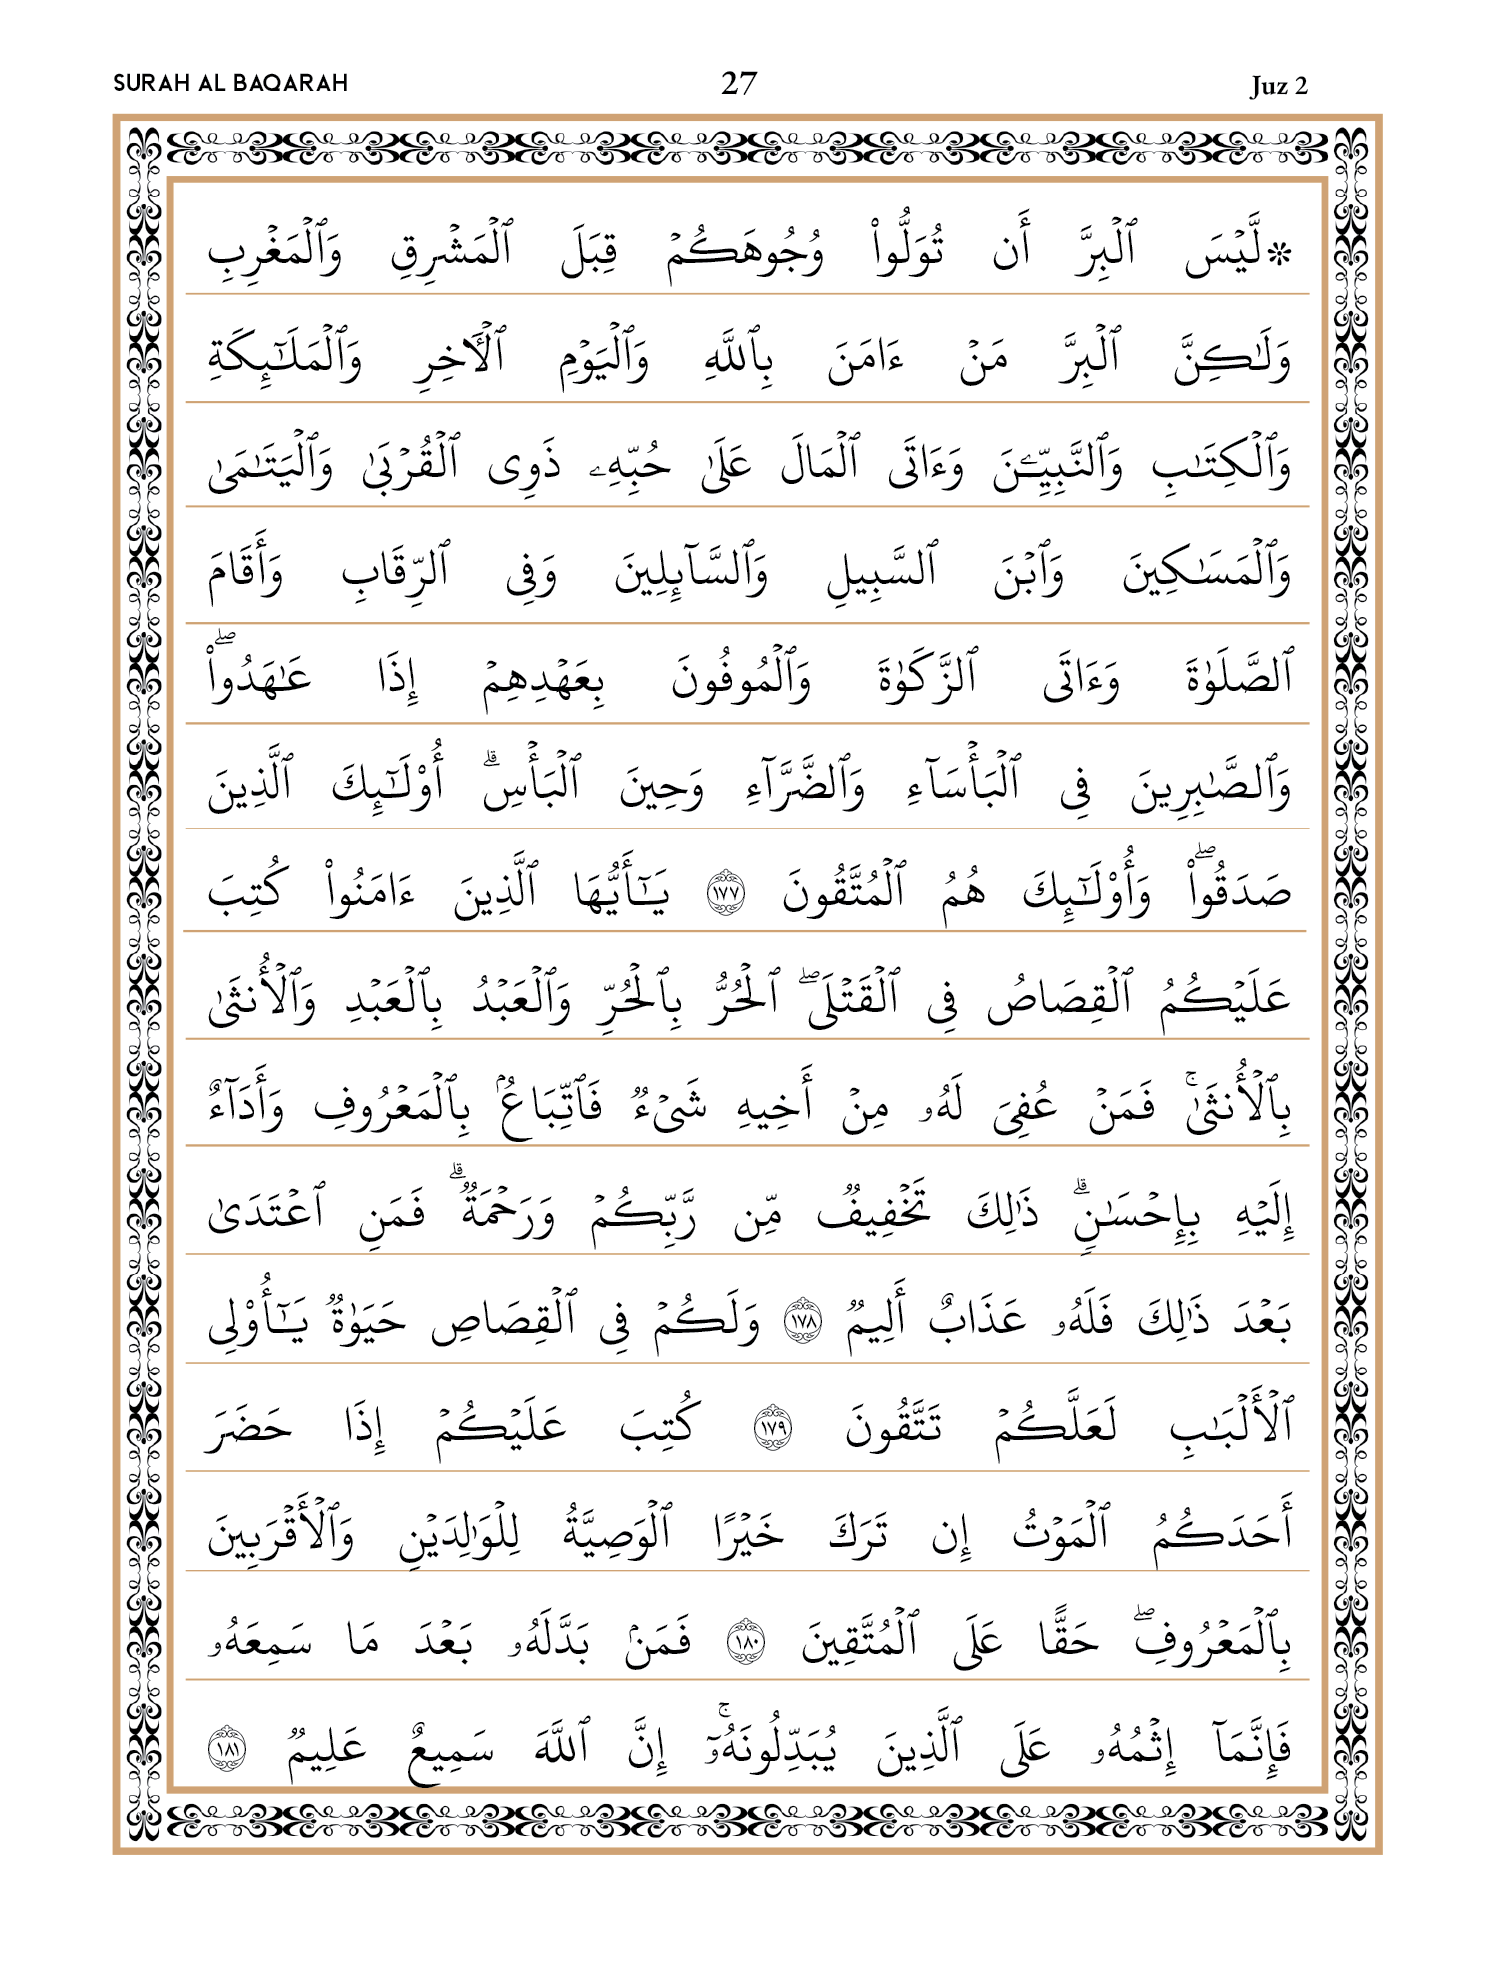 SURAH AL BAQARAH 27 Juz 2
۞لَّيْسَ ٱلْبِرَّ أَن تُوَلُّوا۟ وُجُوهَكُمْ قِبَلَ ٱلْمَشْرِقِ وَٱلْمَغْرِبِ
وَلَـٰكِنَّ ٱلْبِرَّ مَنْ ءَامَنَ بِٱللَّهِ وَٱلْيَوْمِ ٱلْـَٔاخِرِ وَٱلْمَلَـٰٓئِكَةِ
وَٱلْكِتَـٰبِ وَٱلنَّبِيِّـۧنَ وَءَاتَى ٱلْمَالَ عَلَىٰ حُبِّهِۦ ذَوِى ٱلْقُرْبَىٰ وَٱلْيَتَـٰمَىٰ
وَٱلْمَسَـٰكِينَ وَٱبْنَ ٱلسَّبِيلِ وَٱلسَّآئِلِينَ وَفِى ٱلرِّقَابِ وَأَقَامَ
ٱلصَّلَوٰةَ وَءَاتَى ٱلزَّكَوٰةَ وَٱلْمُوفُونَ بِعَهْدِهِمْ إِذَا عَـٰهَدُوا۟ ۖ
وَٱلصَّـٰبِرِينَ فِى ٱلْبَأْسَآءِ وَٱلضَّرَّآءِ وَحِينَ ٱلْبَأْسِ ۗ أُو۟لَـٰٓئِكَ ٱلَّذِينَ
صَدَقُوا۟ ۖ وَأُو۟لَـٰٓئِكَ هُمُ ٱلْمُتَّقُونَ ١٧٧ يَـٰٓأَيُّهَا ٱلَّذِينَ ءَامَنُوا۟ كُتِبَ
عَلَيْكُمُ ٱلْقِصَاصُ فِى ٱلْقَتْلَى ۖ ٱلْحُرُّ بِٱلْحُرِّ وَٱلْعَبْدُ بِٱلْعَبْدِ وَٱلْأُنثَىٰ
بِٱلْأُنثَىٰ ۚ فَمَنْ عُفِىَ لَهُۥ مِنْ أَخِيهِ شَىْءٌ فَٱتِّبَاعٌۢ بِٱلْمَعْرُوفِ وَأَدَآءٌ
إِلَيْهِ بِإِحْسَـٰنٍ ۗ ذَٰلِكَ تَخْفِيفٌ مِّن رَّبِّكُمْ وَرَحْمَةٌ ۗ فَمَنِ ٱعْتَدَىٰ
بَعْدَ ذَٰلِكَ فَلَهُۥ عَذَابٌ أَلِيمٌ ١٧٨ وَلَكُمْ فِى ٱلْقِصَاصِ حَيَوٰةٌ يَـٰٓأُو۟لِى
ٱلْأَلْبَـٰبِ لَعَلَّكُمْ تَتَّقُونَ ١٧٩ كُتِبَ عَلَيْكُمْ إِذَا حَضَرَ
أَحَدَكُمُ ٱلْمَوْتُ إِن تَرَكَ خَيْرًا ٱلْوَصِيَّةُ لِلْوَٰلِدَيْنِ وَٱلْأَقْرَبِينَ
بِٱلْمَعْرُوفِ ۖ حَقًّا عَلَى ٱلْمُتَّقِينَ ١٨٠ فَمَنۢ بَدَّلَهُۥ بَعْدَ مَا سَمِعَهُۥ
فَإِنَّمَآ إِثْمُهُۥ عَلَى ٱلَّذِينَ يُبَدِّلُونَهُۥٓ ۚ إِنَّ ٱللَّهَ سَمِيعٌ عَلِيمٌ ١٨١